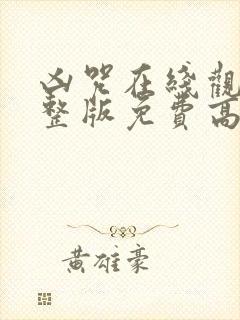 凶咒在綫觀
整版免費高
黄雄豪